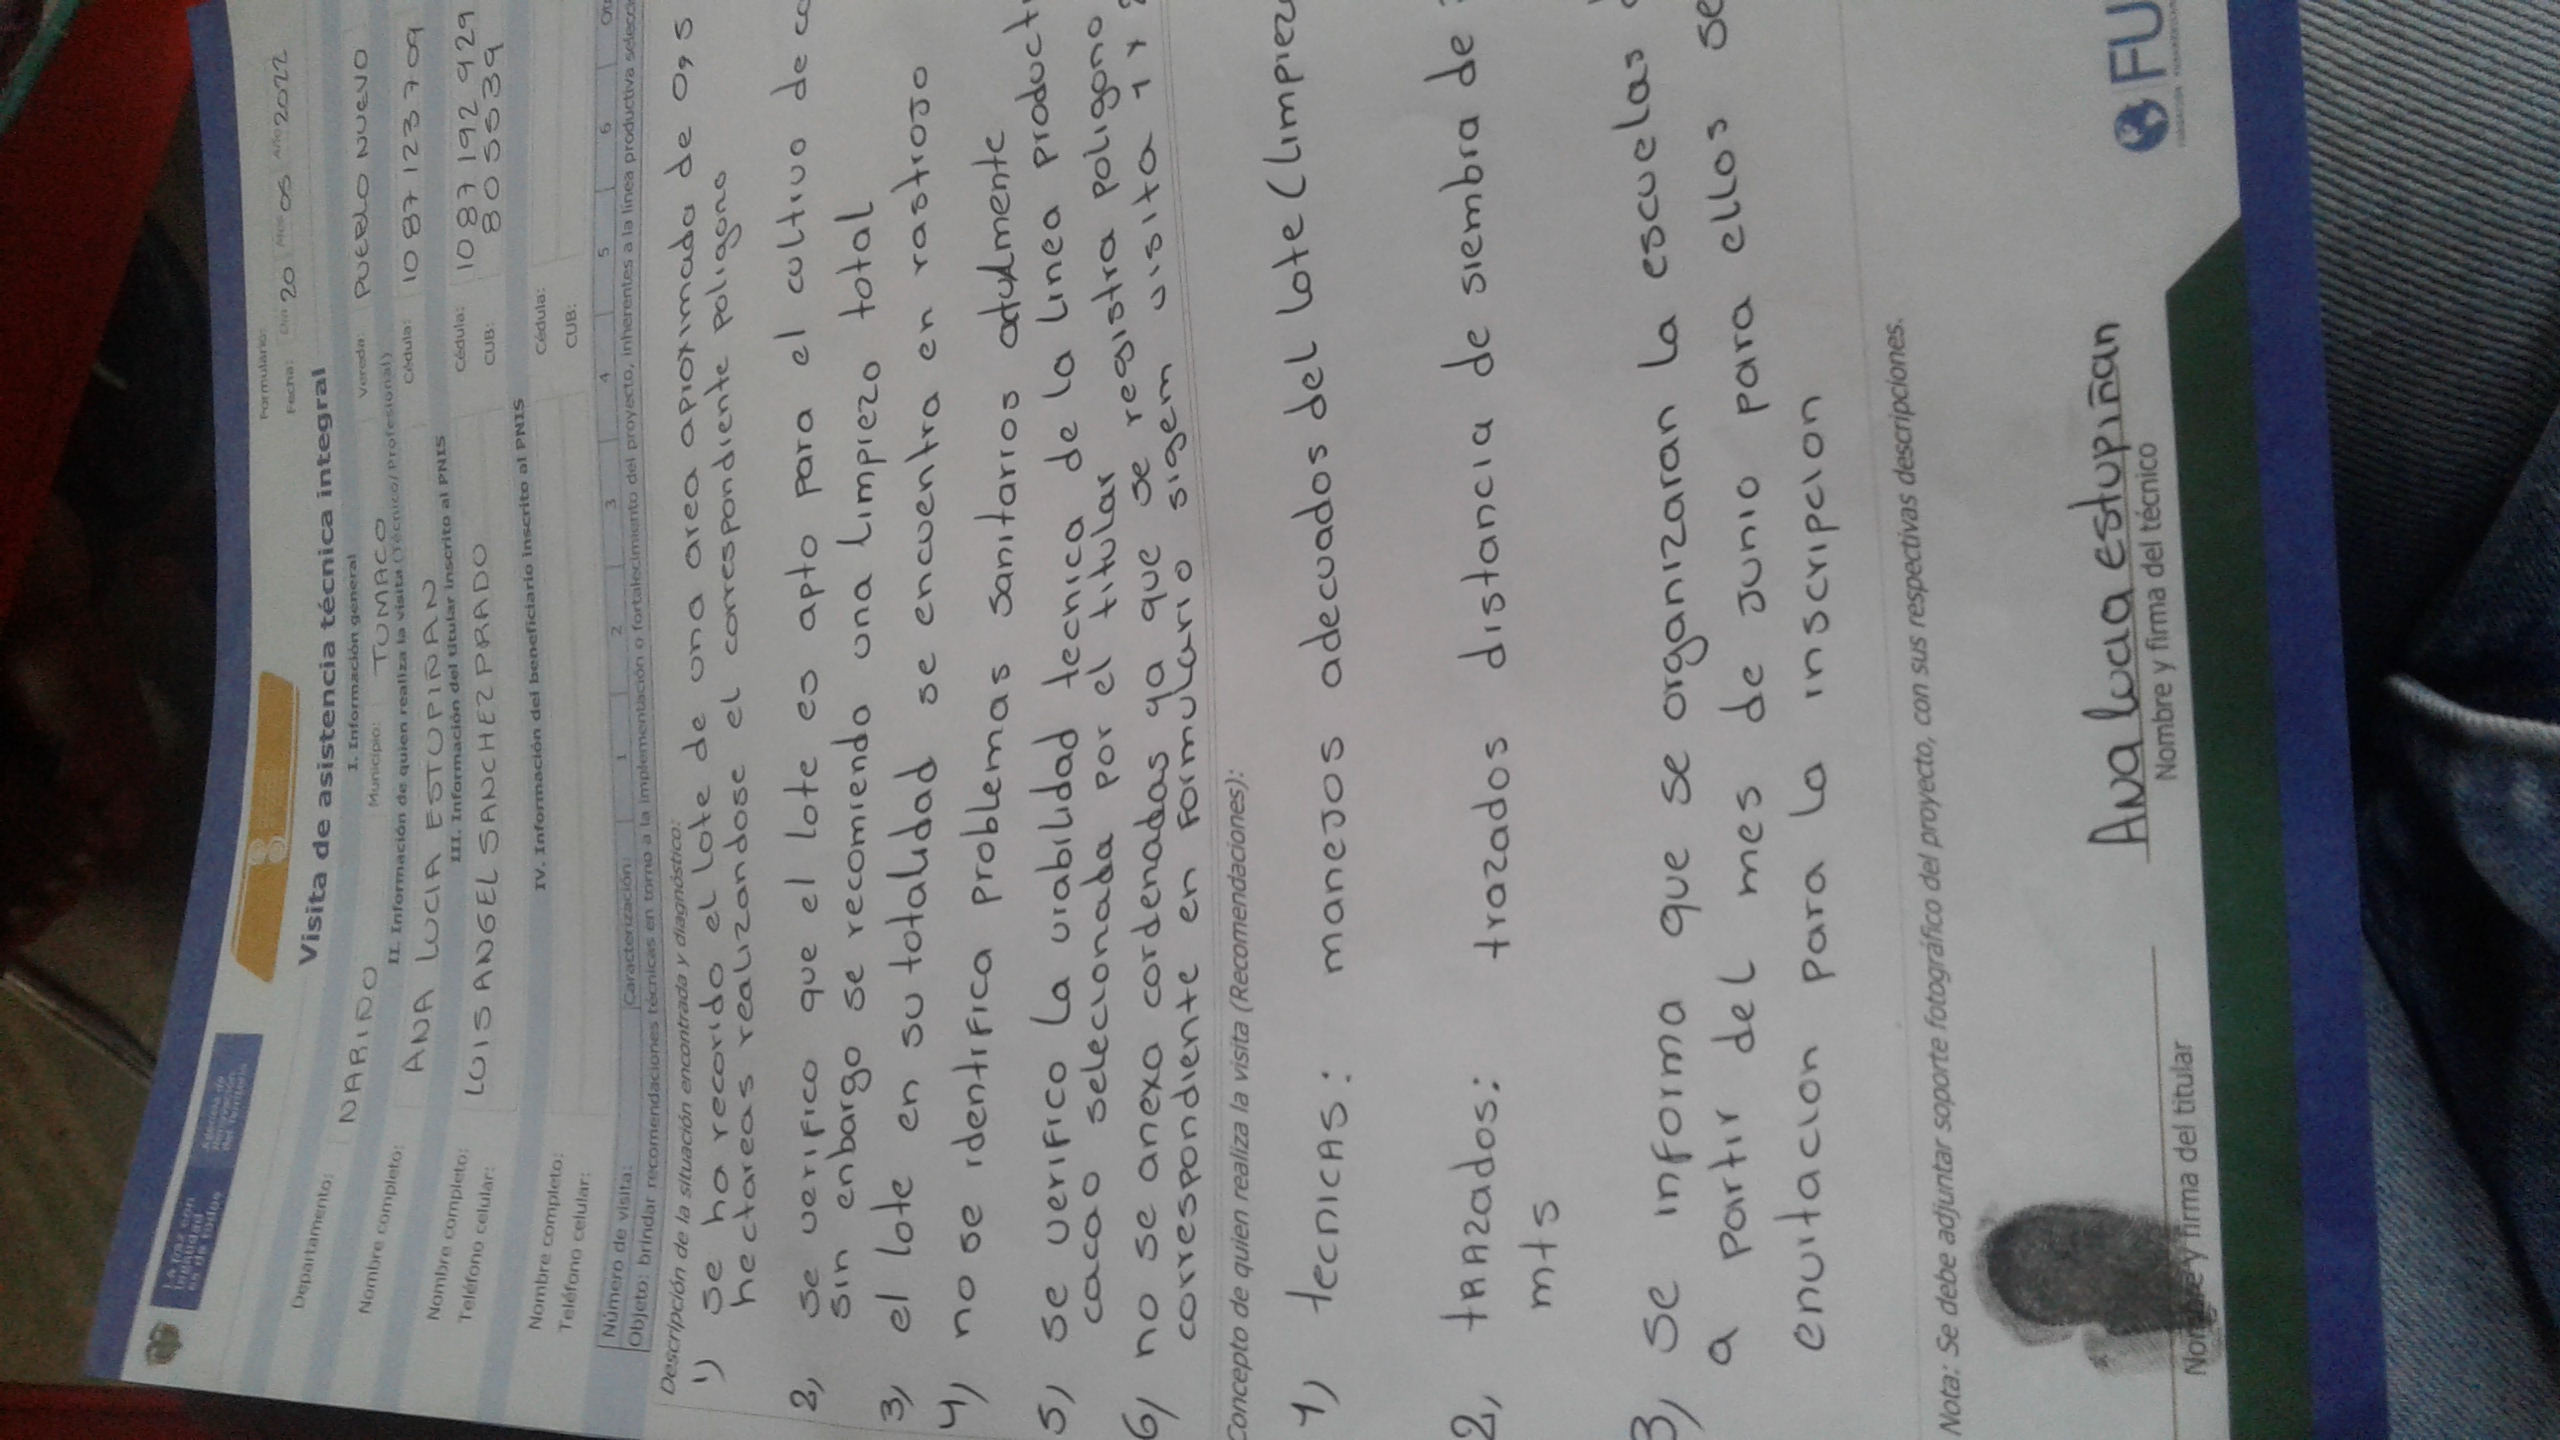 La paz con
legalidad
es de todos
Agencia de
Renovación
del Territorio
Formulario:
Fecha: Día 20 Mes 05 Año 2022
Visita de asistencia técnica integral
I. Información general
Departamento: NARIÑO Municipio: TUMACO Vereda: PUEBLO NUEVO
II. Información de quien realiza la visita (Técnico/Profesional)
Nombre completo: ANA LUCIA ESTUPIÑAN Cédula: 1087123709
III. Información del titular inscrito al PNIS
Nombre completo: LUIS ANGEL SANCHEZ PRADO Cédula: 1087192929
Teléfono celular: CUB: 8055539
IV. Información del beneficiario inscrito al PNIS
Nombre completo: Cédula:
Teléfono celular: CUB:
Número de visita: Caracterización: 1 2 3 4 5 6
Objeto: brindar recomendaciones técnicas en torno a la implementación o fortalecimiento del proyecto, inherentes a la línea productiva
Descripción de la situación encontrada y diagnóstico:
1) se ha recorido el lote de una area aproximada de 0,5
hectareas realizandose el correspondiente poligono
2, se verifico que el lote es apto para el cultivo de
sin enbargo se recomiendo una limpieza total
3, el lote en su totalidad se encuentra en rastrojo
4) no se identifica problemas sanitarios
5, se verifico la viabilidad tecnica de la linea
cacao selecionada por el titular
6, no se anexa cordenadas ya que se registra poligono
correspondiente en formulario sigem visita 1 y
Concepto de quien realiza la visita (Recomendaciones):
1) tecnicAs: manejos adecuados del lote (
2, tRAzados: trazados distancia de siembra de
mts
3, se informa que se organizaran la escuelas
a partir del mes de junio para ellos
envitacion para la inscripcion
Nota: Se debe adjuntar soporte fotográfico del proyecto, con sus respectivas descripciones.
Ana lucia estupiñan
Nombre y firma del titular Nombre y firma del técnico
FU